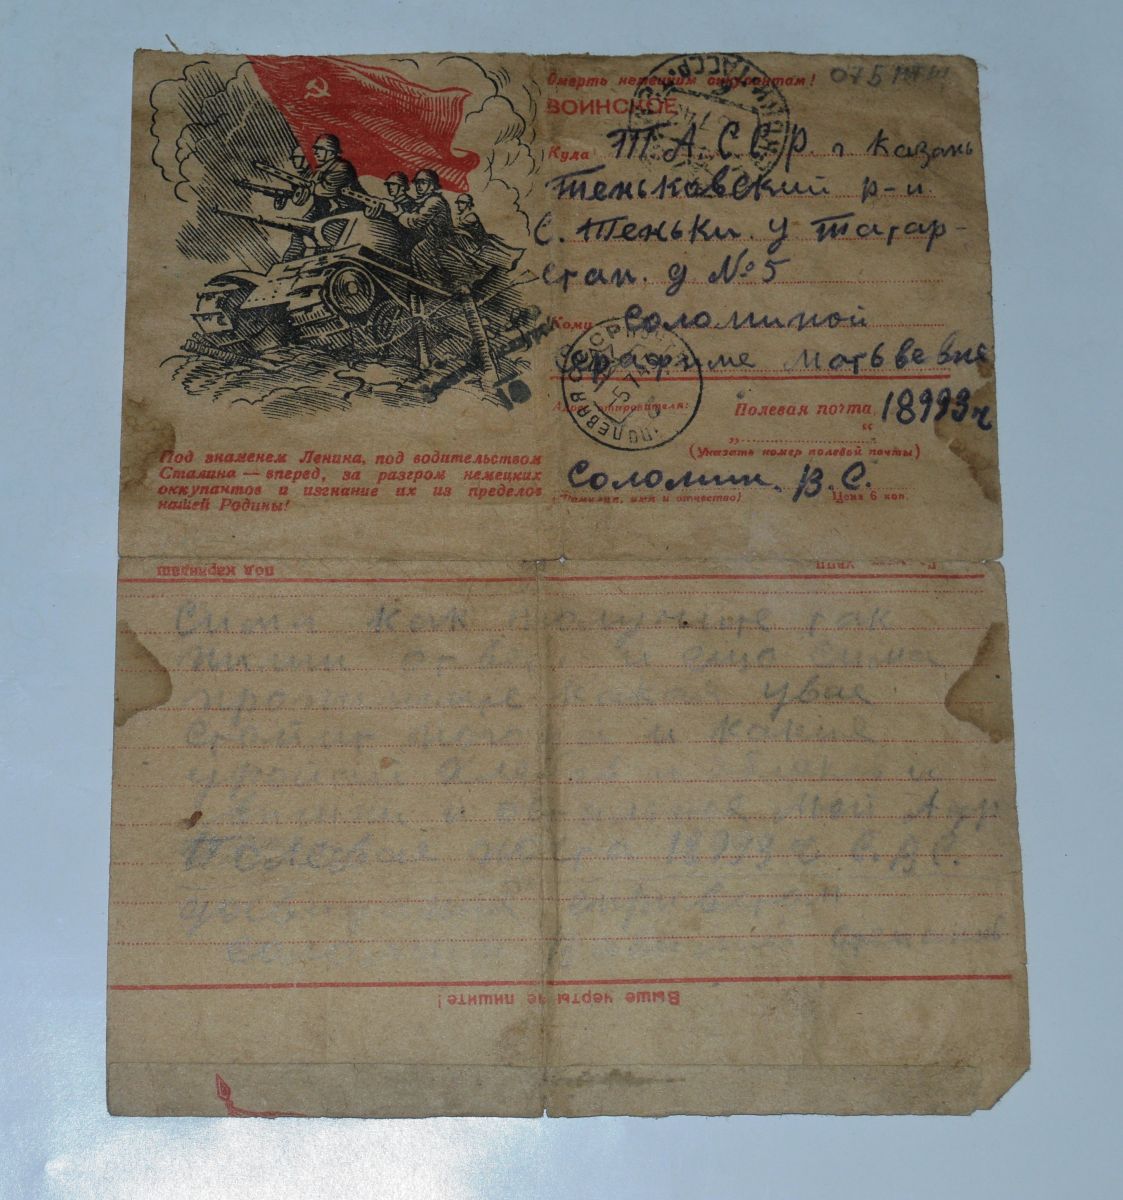 Смерть немецким оккупантам!
075
ВОИНСКОЕ
Куда Т.А.С.С.Р. г Казань
Теньковский р-н.
С. Теньки. у Татар-
стан. д № 5
Кому Соломиной
Серафиме Матьвевне
Адрес отправителя:
Полевая почта 18993 ч
(Указать номер полевой почты)
Соломин. В. С.
(Фамилия, имя и отчество) Цена 6 коп.
ПОЛЕВАЯ
5 7 4
10
Под знаменем Ленина, под водительством
Сталина — вперед, за разгром немецких
оккупантов и изгнание их из пределов
нашей Родины!
под карандаш
Сима как получите так
пиши ответ и ещо Сима
пропишите какая у вас
стойит погода и какие
урожай хлебов
и остальное Мой Адр
Полевая почта 18993 ч С. В. С.
Выше черты не пишите!